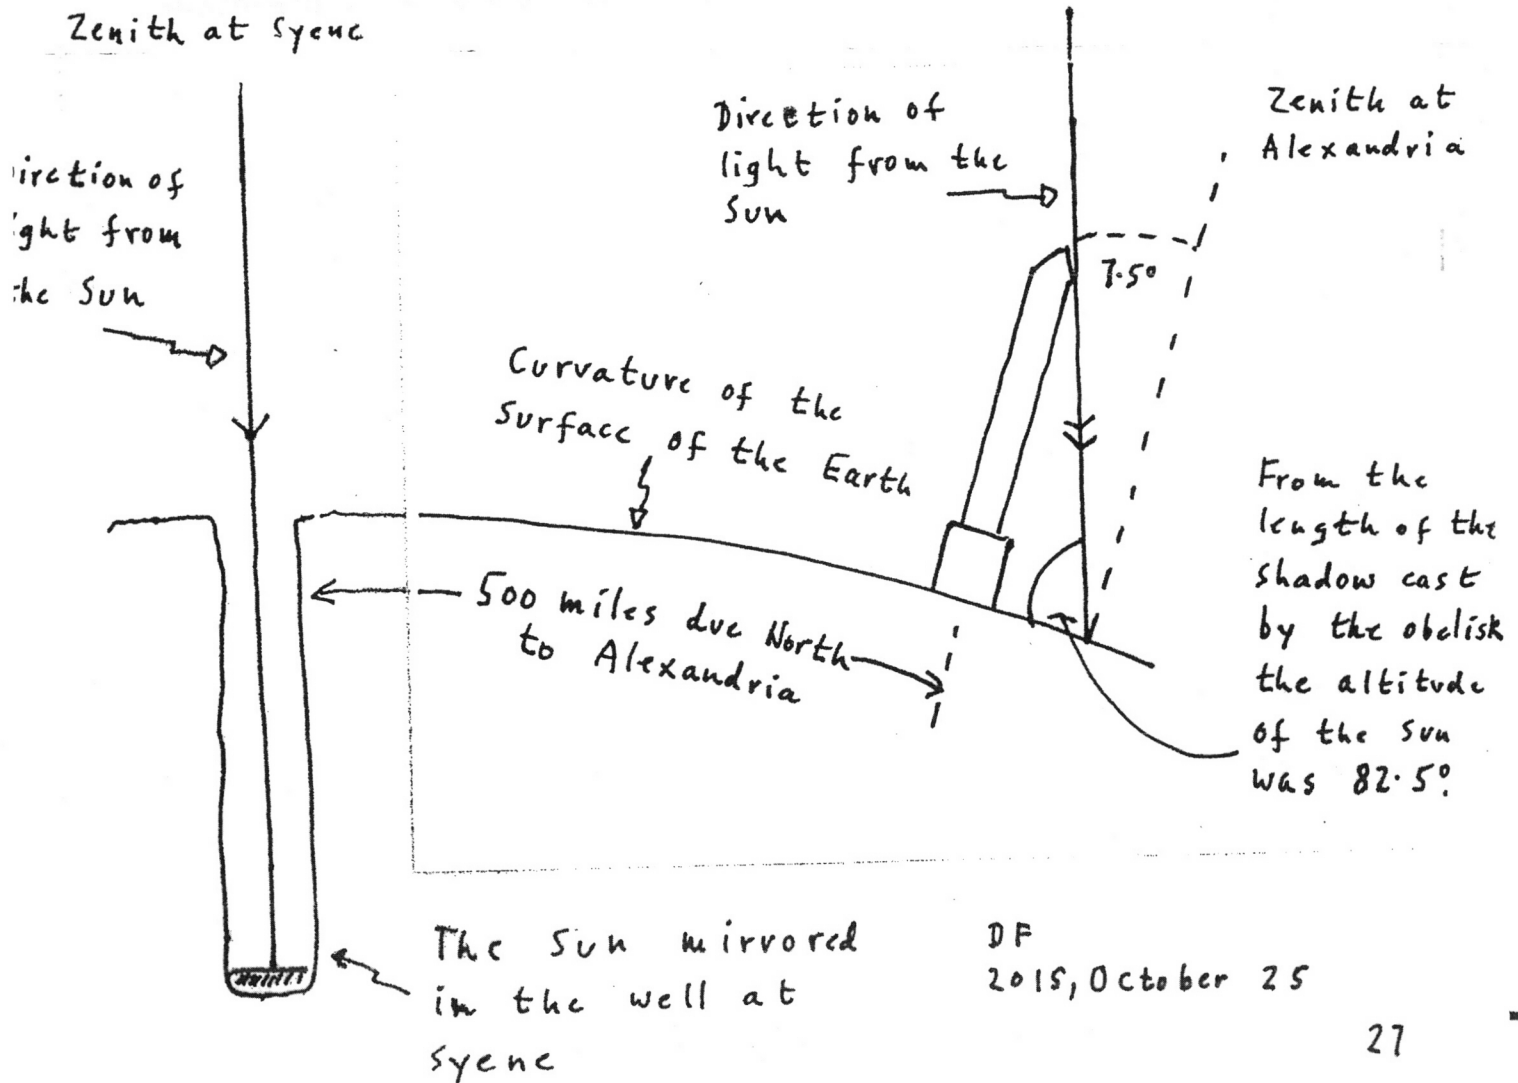 Zenith at Syene
irection of
ight from
the Sun
Direction of
light from the
Sun
Zenith at
Alexandria
7.5°
Curvature of the
surface of the Earth
500 miles due North
to Alexandria
From the
length of the
shadow cast
by the obelisk
the altitude
of the sun
was 82.5°.
The Sun mirrored
in the well at
Syene
DF
2015, October 25
27